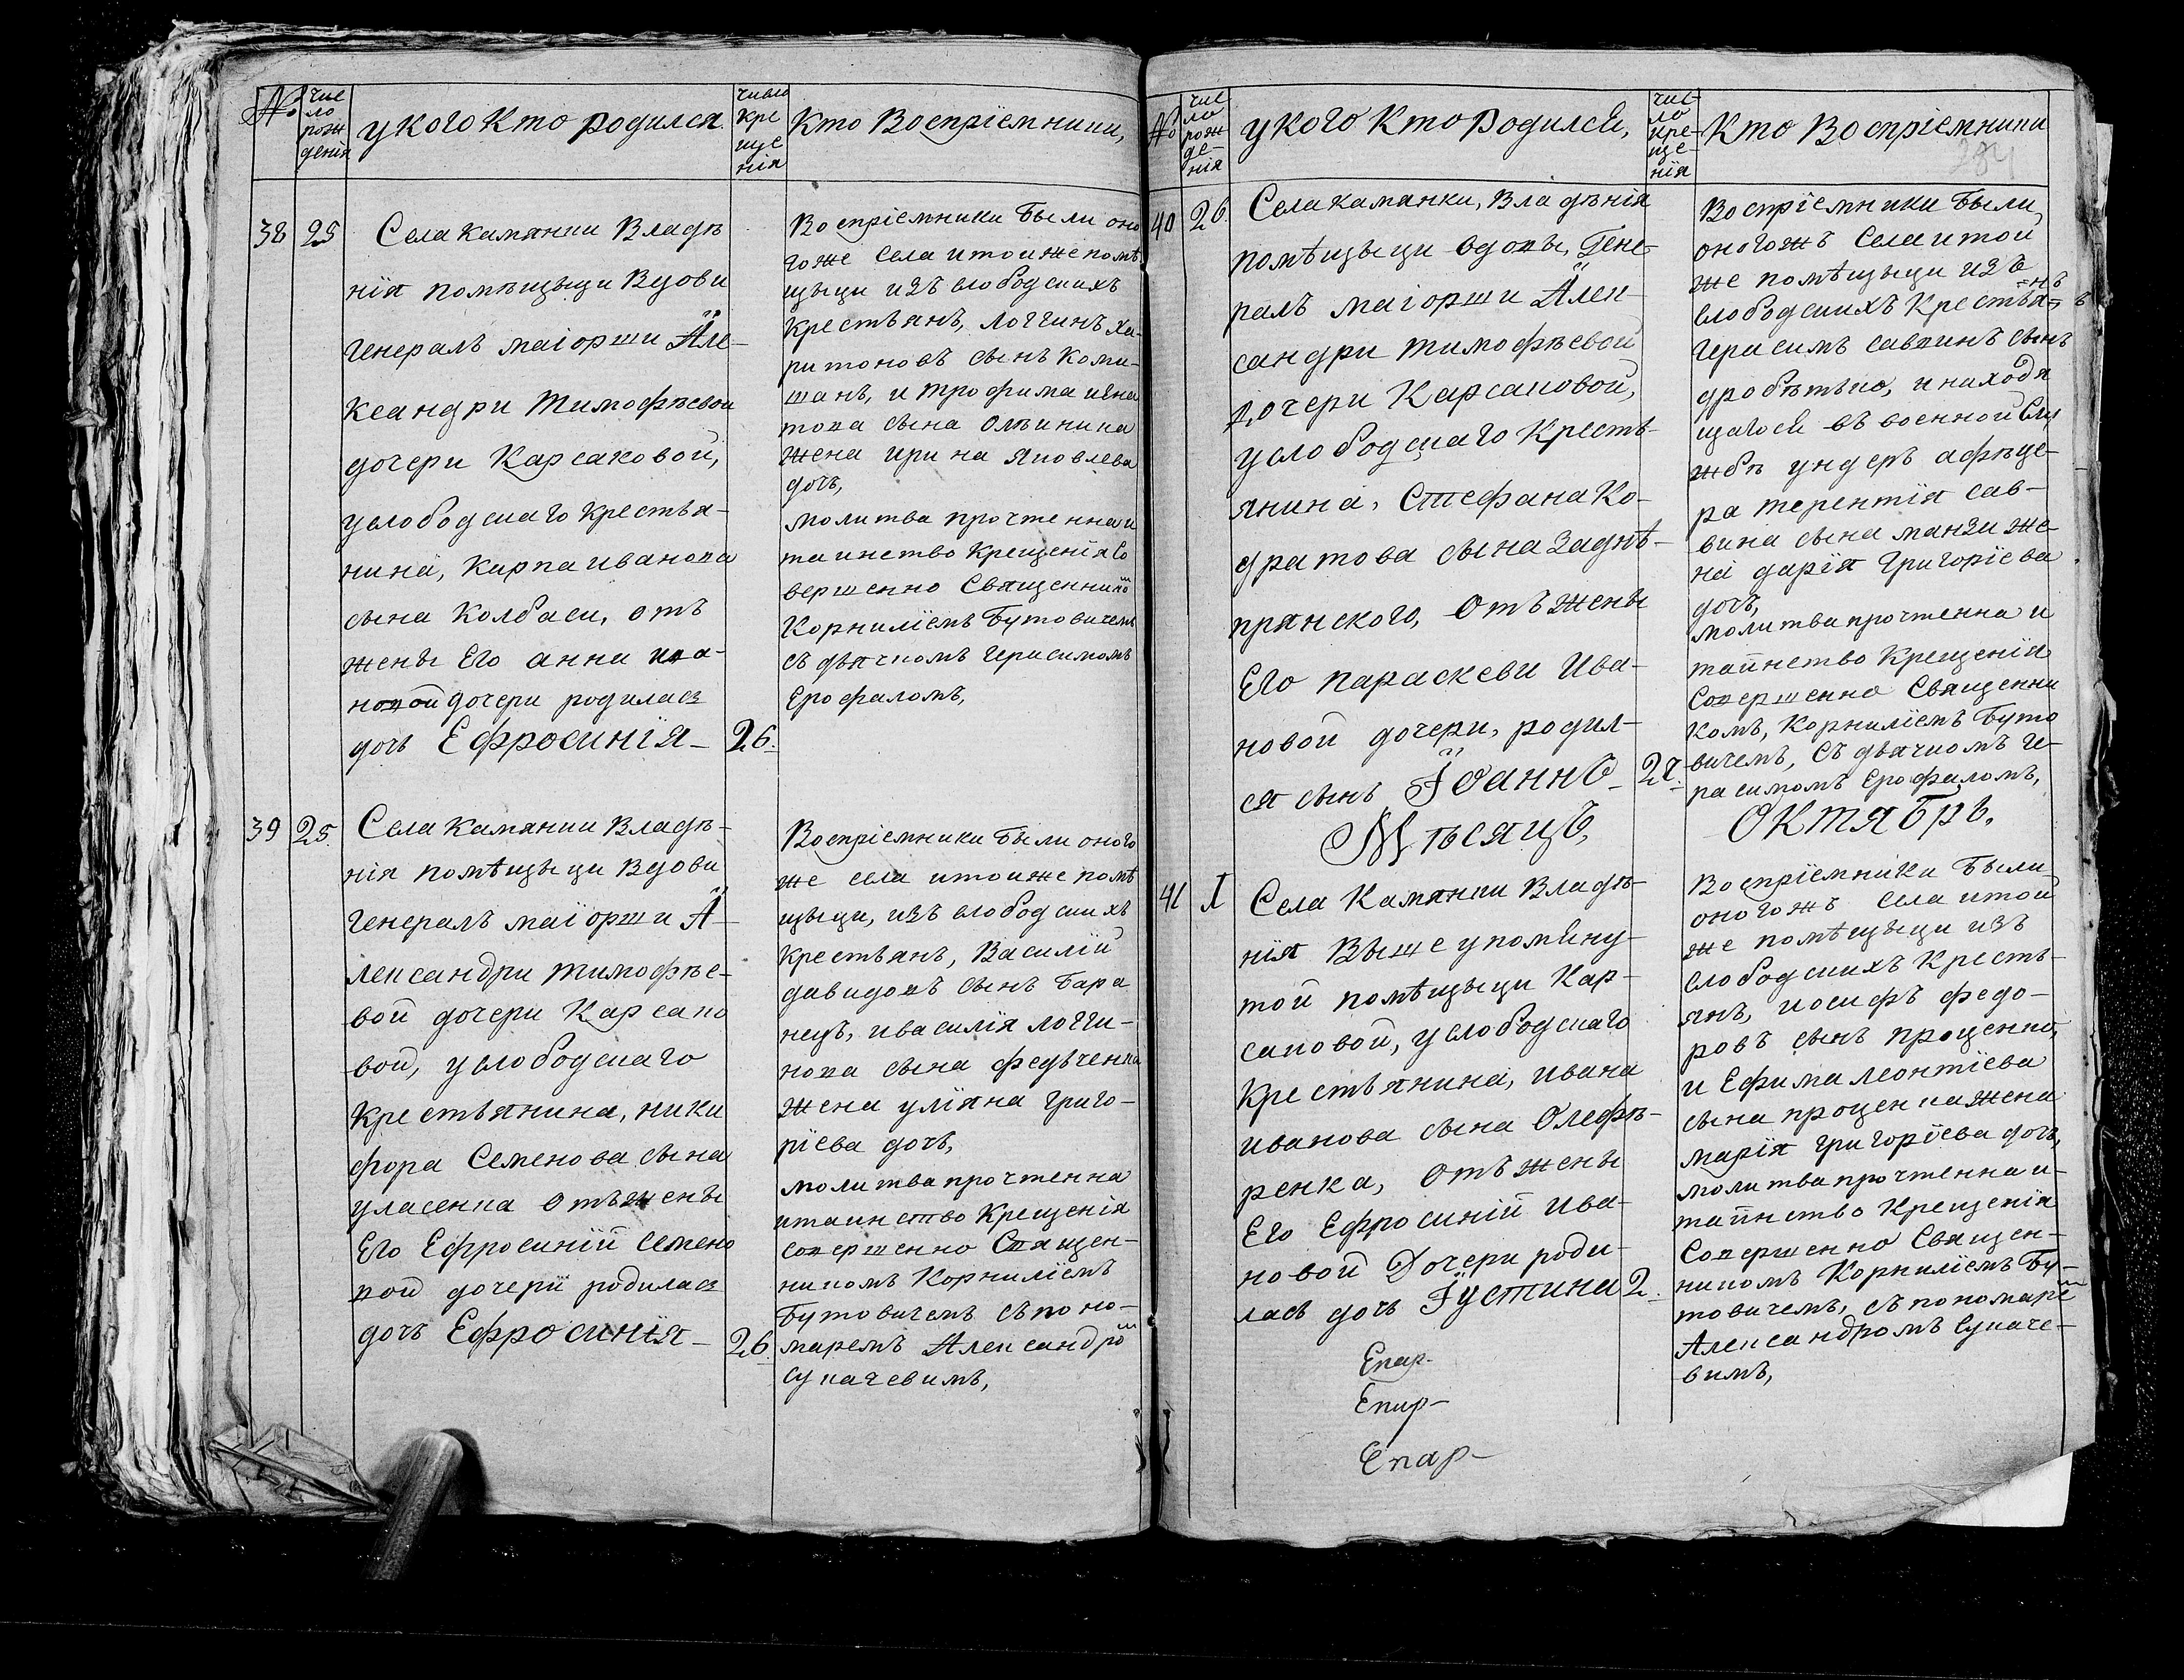 №
Чис
ло
рож
денія
у кого кто родился
число
кре
ще
нія
Кто Воспріемники,
38
25
Села Камянки Владѣ
нія помѣщыци Вдови
генералъ маіорши Але-
ксандри Тимофѣевои
дочери Карсаковой,
у слободскаго крестья-
нина, Карпа иванова
сына Колбаси, отъ
жены Его анни ива-
новой дочери родилась
дочь Ефросинія
26.
Воспріемники были оно
гоже села итоиже помѣ
щыци изъ слободскихъ
крестьянъ, логгинъ ха-
ритоновъ сынъ коми-
шанъ, и трофима игна
това сына олѣиника
жена ирина яковлева
дочь,
молитва прочтенна и
таинство крещенія со
вершенно Священнико
Корниліемъ Бутовичемъ
съ дьячкомъ герасимомъ
Ерофаломъ,
39
25.
Села Камянки Владѣ-
нія помѣщыци Вдови
генералъ маіорши А-
лександри тимофѣе-
вой дочери Карсако
вой, у слободскаго
крестьянина, ники
фора Семенова сына
уласенка отъ жены
Его Ефросиніи семено
вой дочери родилась
дочь Ефросинія
26
Воспріемники были оного
же села итоиже помѣ
щыци, изъ слободскихъ
крестьянъ, Василій
давидовъ сынъ Бара
нецъ, ивасилія логги-
нова сына федченка
жена уліяна григо-
ріева дочь,
молитва прочтенна
итаинство крещенія
совершенно Священ-
никомъ Корниліемъ
Бутовичемъ съ поно-
маремъ Александро
Сукачевимъ,
№
чис
ло
рож
де-
нія
у кого кто родился,
чис-
ло
кре-
ще-
нія
Кто Воспріемники
284
40
26
Села камянки, Владѣнія
помѣщыци вдовы, Гене-
ралъ маіорши Алек-
сандри тимофѣевой
дочери Карсаковой,
у слободскаго кресть-
янина, Стефана Ко-
дратова сына Заднѣ-
прянского, отъ жены
Его параскеви ива-
новой дочери, родил-
ся сынъ Іоаннъ
27.
Воспріемники были,
оногожъ Села итой
же помѣщыци изъ
слободскихъ Крестья-нъ
герасимъ саввинъ сынъ
дробѣтько, и находя
щагося въ военной слу
жбѣ ундеръ афѣце-
ра терентія сав-
вина сына манзи же-
на дарія григоріева
дочь,
молитва прочтенна и
таинство Крещенія
Совершенно Священни
комъ, Корниліемъ Буто
вичемъ, съ дьячкомъ ге-
расимомъ Ерофаломъ,
Мѣсяцъ,
Октябрь.
41
1
Села Камянки Владѣ-
нія Вышеупомяну-
той помѣщыци Кар-
саковой, у слободскаго
Крестьянина, ивана
иванова сына Олефѣ-
ренка, отъ жены
Его Ефросиніи ива-
новой Дочери роди-
лась дочь Іустина
2.
Воспріемники были
оногожъ села итой
же помѣщыци изъ
слободскихъ Кресть-
янъ, иосифъ федо-
ровъ сынъ проценко,
и Ефима леонтіева
сына проценка жена
марія григоріева дочь,
молитва прочтенна и-
таинство Крещенія
Совершенно Священ-
никомъ Корниліемъ Бу-
товичемъ, съ пономаре
Александромъ Сукаче-
вимъ,
Епар-
Епар-
Епар-